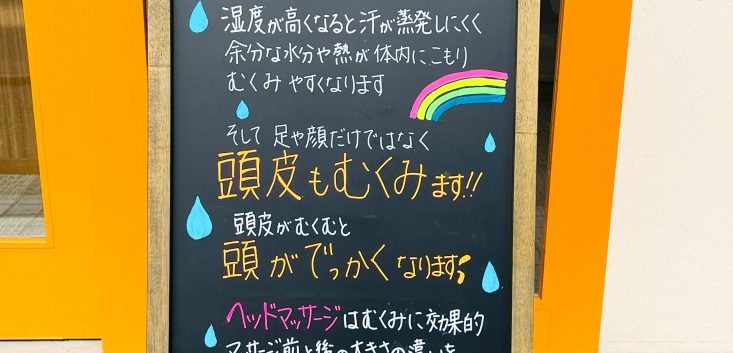 湿度が高くなると汗が蒸発しにくく
余分な水分や熱が体内にこもり
むくみやすくなります
そして 足や顔だけではなく
頭皮もむくみます!!
頭皮がむくむと
頭がでっかくなります
ヘッドマッサージはむくみに効果的
マッサージ前と後の大きさの違いを